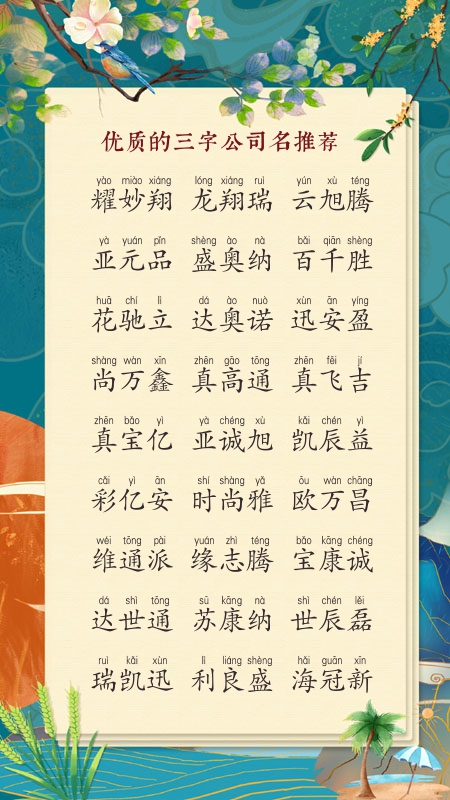 优质的三字公司名推荐
yào miào xiáng lóng xiáng ruì yún xù téng
耀妙翔 龙翔瑞 云旭腾
yà yuán pǐn shèng ào nà bǎi qiān shèng
亚元品 盛奥纳 百千胜
huā chí lì dá ào nuò xùn ān yíng
花驰立 达奥诺 迅安盈
shàng wàn xīn zhēn gāo tōng zhēn fēi jí
尚万鑫 真高通 真飞吉
zhēn bǎo yì yà chéng xù kǎi chén yì
真宝亿 亚诚旭 凯辰益
cǎi yì ān shí shàng yǎ ōu wàn chāng
彩亿安 时尚雅 欧万昌
wéi tōng pài yuán zhì téng bǎo kāng chéng
维通派 缘志腾 宝康诚
dá shì tōng sū kāng nà shì chén lěi
达世通 苏康纳 世辰磊
ruì kǎi xùn lì liáng shèng hǎi guān xīn
瑞凯迅 利良盛 海冠新